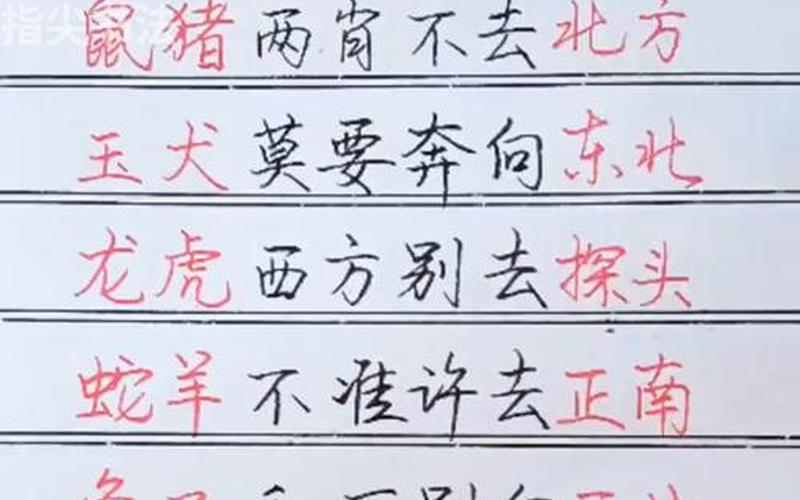 指尖书法
鼠猪两肖不去北方
玉犬莫要奔向东北
龙虎西方别去探头
蛇羊不准许去正南